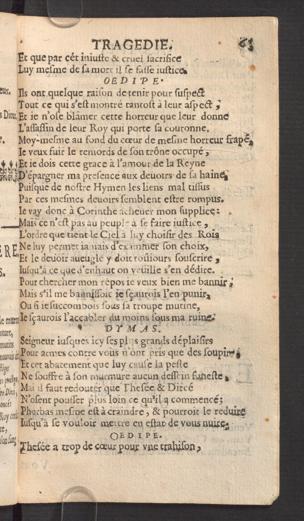 TRAGEDIE. 63
Et que par cét iniuste & cruel sacrifice
Luy mesme de sa mort il se fasse iustice.
OEDIPE.
Ils ont quelque raison de tenir pour suspect
Tout ce qui s'est montré tantost à leur aspect;
Et ie n'ose blâmer cette horreur que leur donne
L'assassin de leur Roy qui porte sa couronne.
Moy-mesme au fond du cœur de mesme horreur frapé,
Ie veux fuir le remords de son trône occupé,
Et ie dois cette grace à l'amour de la Reyne
D'épargner ma presence aux devoirs de sa haine,
Puisque de nostre Hymen les liens mal tissus
Par ces mesmes devoirs semblent estre rompus.
Ie vay donc à Corinthe achever mon supplice:
Mais ce n'est pas au peuple à se faire iustice,
L'ordre que tient le Ciel à luy choisir des Rois
Ne luy permet iamais d'examiner son choix,
Et le devoir aveugle y doit tousiours souscrire,
Iusqu'à ce que d'enhaut on veuille s'en dédire.
Pour chercher mon repos ie veux bien me bannir,
Mais s'il me bannissoit ie sçaurois l'en punir,
Ou si ie succombois sous sa troupe mutine,
Ie sçaurois l'accabler du moins sous ma ruine.
DYMAS.
Seigneur iusques icy ses plus grands déplaisirs
Pour armes contre vous n'ont pris que des soupirs,
Et cet abatement que luy cause la peste
Ne souffre à son murmure aucun dessein funeste,
Mais il faut redouter que Thesée & Dircé
N'osent pousser plus loin ce qu'il a commencé:
Phorbas mesme est à craindre, & pourroit le reduire
Iusqu'à se vouloir mettre en estat de vous nuire.
OEDIPE.
Thesée a trop de cœur pour vne trahison,